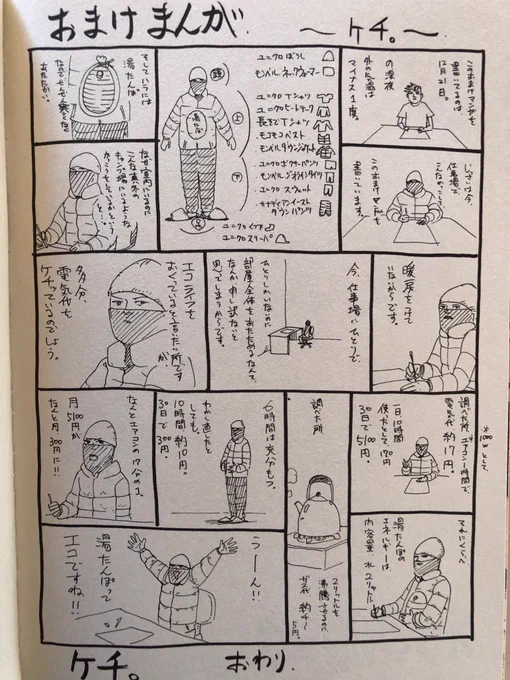 おまけまんが
〜ケチ。〜
このおまけマンガを
書いてるのは
12月21日。
の深夜
外の気温は
マイナス1度。
じっさいは今、
仕事場で、
こんなかっこうで、
このおまけマンガを
書いています。
ユニクロぼうし
モンベル ネックウォーマー
ユニクロTシャツ
ユニクロヒートテック
長そでTシャツ
モコモコベスト
モンベルダウンジャケット
ユニクロボクサーパンツ
モンベルジオラインタイツ
ユニクロ スウェット
カナディアンイースト
ダウンパンツ
ユニクロくつ下
ユニクロスリーパ
頭
上
下
足
湯たんぽ
そしていちには
湯たんぽ
あたたかい。
なぜ室内にいるのに
こんな真冬の
キャンプ場にいるような
かっこうをしているかというと…
暖房をつけて
いないからです。
今、仕事場にひとりで、
ひとりしかいないのに
部屋全体をあたためるなんて、
なんか申し訳ないと
思ってしまうからです。
エコライフを
おくっていると言いたい所です
が、
多分、
電気代を
ケチっているのでしょう。
※1000Wとして。
調べた所、エアコン1時間で、
電気代、約17円。
一日、10時間
使ったとして170円
30日で5100円。
調べた所
2リットルを
沸騰させるのに
ガス代 約4〜
5円。
6時間は充分もつ。
わかし直したと
しても、
10時間 約10円。
30日で300円。
なんとエアコンの17分の1。
月
5100円が
なんと月300円に!!
それにくらべ
湯たんぽの
エネルギーは、
内容量 水2リットル
うーん!!
湯たんぽって
エコですね!!
ケチ。
おわり